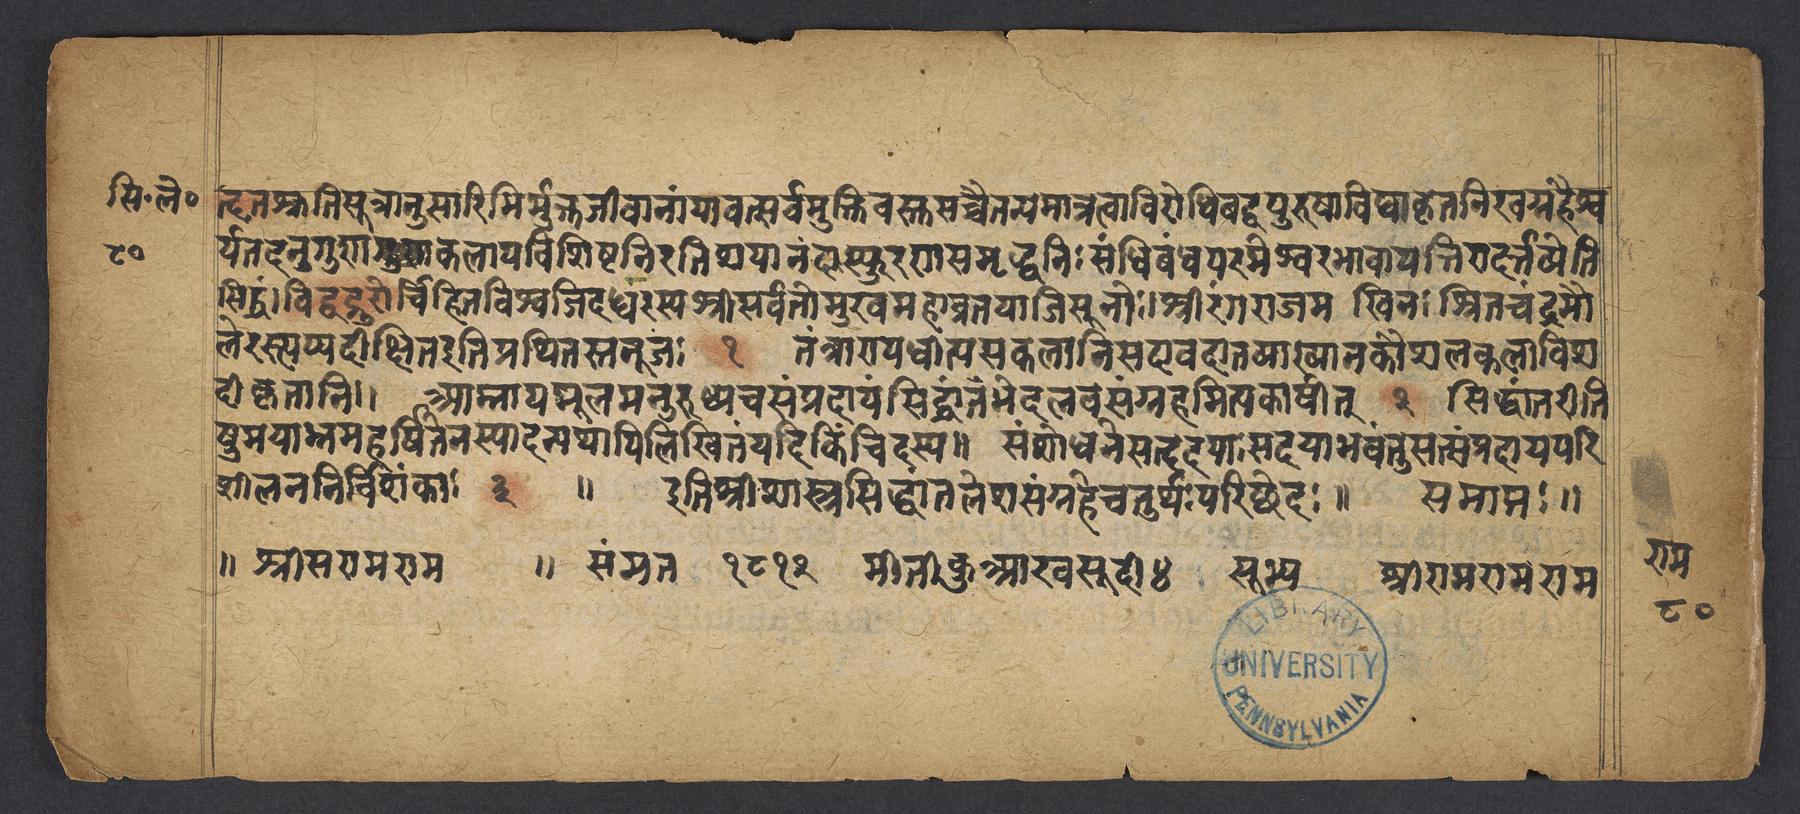 सि॰ले॰
८०
दतश्रुतिसूत्रानुसारिभिर्मुक्तजीवानांयावत्सर्वमुक्तिवस्तुसच्चैतन्यमात्रत्वाविरोधिबद्धपुरुषाविद्याकृतनिरवग्रहैश्व
र्यतदनुगुणगुणकलापविशिष्टनिरतिशयानंदस्फुरणसमृद्धनिःसंधिबंधपरमेश्वरभावापत्तिरादर्त्तव्येति
सिद्धं।विद्वद्गुरोर्विहितविश्वजिदध्वरस्यश्रीसर्वतोमुखमहाव्रतयाजिसूनोः।श्रीरंगराजमखिनःश्रितचंद्रमौ
लेरस्त्यप्यदीक्षितइतिप्रथितस्तनूजः १ तंत्राण्यधीत्यसकलानिसदावदातव्याख्यानकौशलकलाविश
दीकृतानि।। आम्नायमूलमनुरुध्यचसंप्रदायंसिद्धांतभेदलवसंग्रहमित्यकार्षीत् २ सिद्धांतरीति
षुमयाभ्रमदूषितेनस्यादन्यथापिलिखितंयदिकिंचिदस्य॥ संशोधनेसहृदयाःसदयाभवंतुसत्संप्रदायपरि
शीलननिर्विशंकाः ३ ॥ इतिश्रीशास्त्रसिद्धांतलेशसंग्रहेचतुर्थःपरिछेदः॥ समाप्तः॥
॥ श्रीसरामराम ॥ संमत १८१२ मीती सुदी ४ सूभ्य श्रीरामरामराम
राम
८०
LIBRARY
UNIVERSITY
PENNSYLVANIA